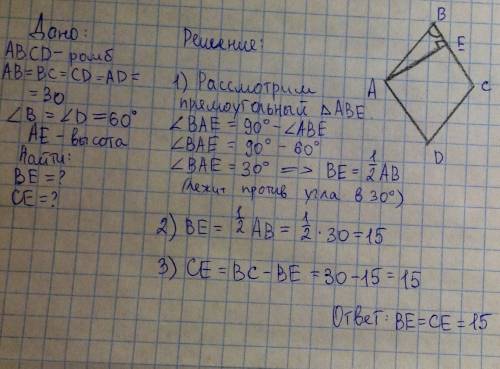 Дано:
ABCD - ромб
AB = BC = CD = AD =
= 30
∠B = ∠D = 60°
AE - высота
Найти:
BE = ?
CE = ?
Решение:
1) Рассмотрим
прямоугольный △ABE.
∠BAE = 90° - ∠ABE
∠BAE = 90° - 60°
∠BAE = 30° => BE = 1/2 AB
(лежит против угла в 30°)
2) BE = 1/2 AB = 1/2 · 30 = 15
3) CE = BC - BE = 30 - 15 = 15
Ответ: BE = CE = 15
B
E
A
C
D